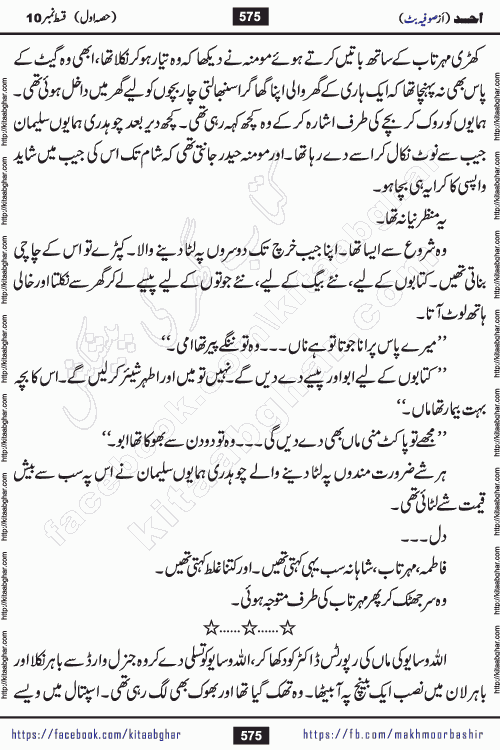 احد (از صوفیہ بٹ) 575 (حصہ اول) قسط نمبر 10
کھڑی مہر تاب کے ساتھ باتیں کرتے ہوئے مومنہ نے دیکھا کہ وہ تیار ہو کر نکلا تھا، ابھی وہ گیٹ کے
پاس بھی نہ پہنچا تھا کہ ایک ہاری کے گھر والی اپنا گھاگرا سنبھالتی چار بچوں کو لیے گھر میں داخل ہوئی تھی۔
ہمایوں کو روک کر بچے کی طرف اشارہ کر کے وہ کچھ کہہ رہی تھی۔ کچھ دیر بعد چوہدری ہمایوں سلیمان
جیب سے نوٹ نکال کر اسے دے رہا تھا۔ اور مومنہ حیدر جانتی تھی کہ شام تک اس کی جیب میں شاید
واپسی کا کرایہ ہی بچا ہو۔
یہ منظر نیا نہ تھا۔
وہ شروع سے ایسا تھا۔ اپنا جیب خرچ تک دوسروں پہ لٹا دینے والا۔ کپڑے تو اس کے چاچی
بناتی تھیں۔ کتابوں کے لیے، نئے بیگ کے لیے، نئے جوتوں کے لیے پیسے لے کر گھر سے نکلتا اور خالی
ہاتھ لوٹ آتا۔
’’میرے پاس پرانا جوتا تو ہے ناں۔۔۔ وہ تو ننگے پیر تھا امی۔‘‘
’’کتابوں کے لیے ابو اور پیسے دے دیں گے۔ نہیں تو میں اور اطہر شیئر کر لیں گے۔ اس کا بچہ
بہت بیمار تھا ماں۔‘‘
’’مجھے تو پاکٹ منی ماں بھی دے دیں گی۔۔۔ وہ تو دو دن سے بھوکا تھا ابو۔‘‘
ہر شے ضرورت مندوں پہ لٹا دینے والے چوہدری ہمایوں سلیمان نے اس پہ سب سے بیش
قیمت شے لٹائی تھی۔
دل۔۔۔
فاطمہ، مہر تاب، شاہانہ سب یہی کہتی تھیں۔ اور کتنا غلط کہتی تھیں۔
وہ سر جھٹک کر پھر مہر تاب کی طرف متوجہ ہوئی۔
☆......☆......☆
اللہ وسایو کی ماں کی رپورٹس ڈاکٹر کو دکھا کر، اللہ وسایو کو تسلی دے کر وہ جنرل وارڈ سے باہر نکلا اور
باہر لان میں نصب ایک بینچ پہ آ بیٹھا۔ وہ تھک گیا تھا اور بھوک بھی لگ رہی تھی۔ اسپتال میں ویسے
https://facebook.com/kitaabghar 575 https://fb.com/makhmoorbashir
http://kitaabghar.com
کتاب گھر کی پیشکش
facebook.com/kitaabghar
kitaabghar.com